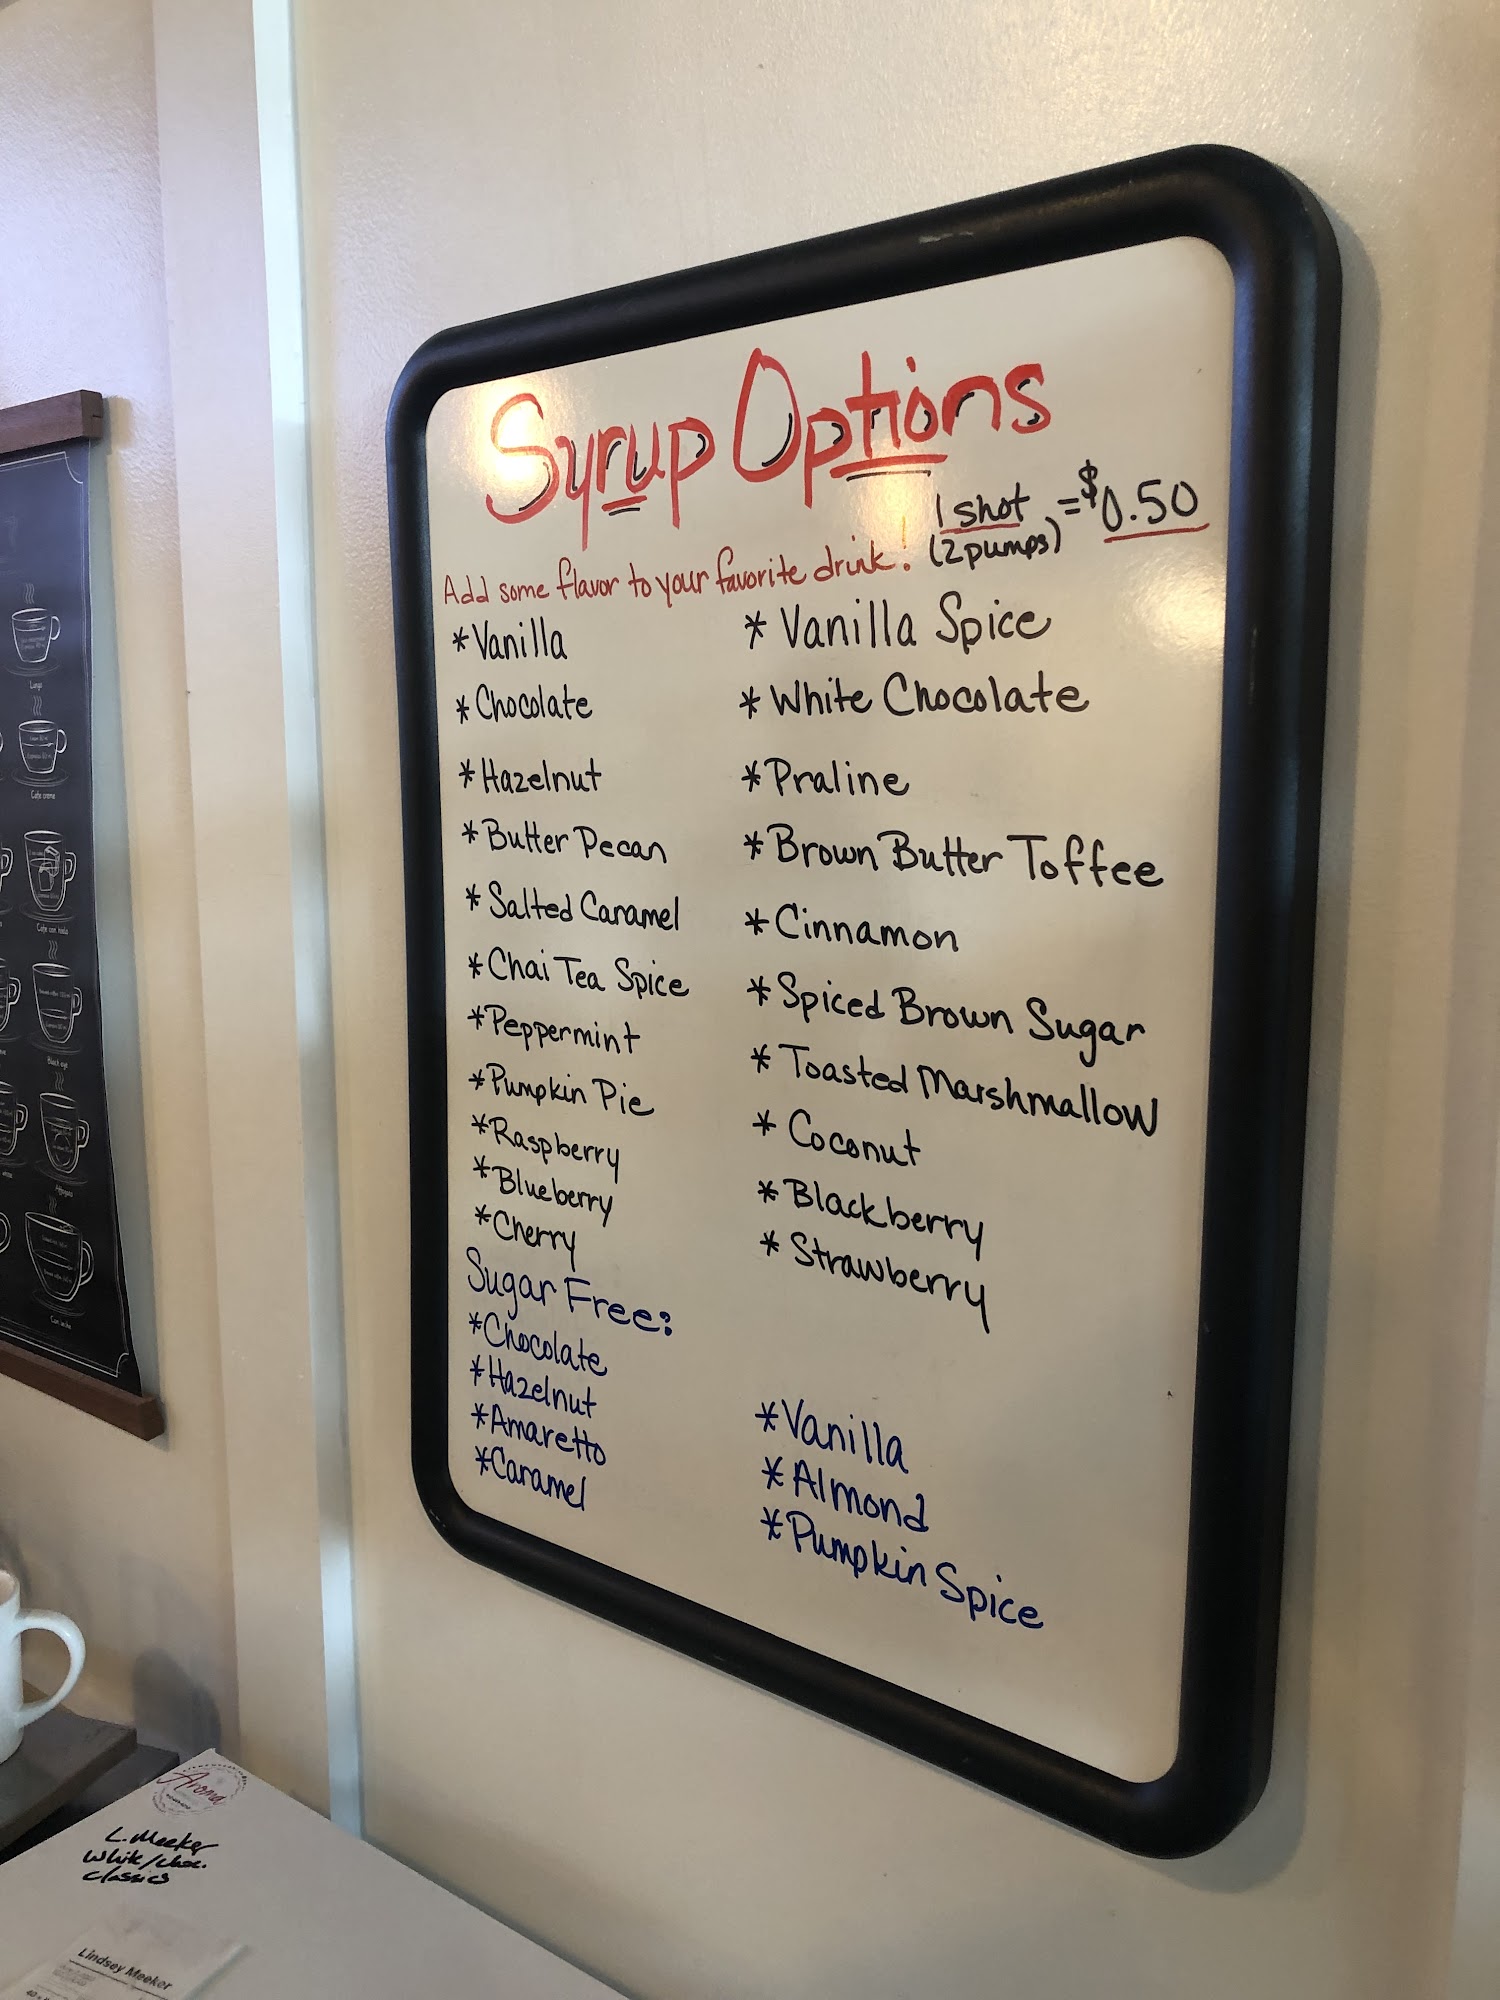 Syrup Options
1 shot = $0.50
(2 pumps)
Add some flavor to your favorite drink!
*Vanilla
*Chocolate
*Hazelnut
*Butter Pecan
*Salted Caramel
*Chai Tea Spice
*Peppermint
*Pumpkin Pie
*Raspberry
*Blueberry
*Cherry
* Vanilla Spice
* White Chocolate
*Praline
*Brown Butter Toffee
*Cinnamon
*Spiced Brown Sugar
* Toasted Marshmallow
* Coconut
*Blackberry
* Strawberry
Sugar Free:
*Chocolate
*Hazelnut
*Amaretto
*Caramel
*Vanilla
*Almond
*Pumpkin Spice
Lungo
Cafe creme
Cafe con hielo
Black eye
Affogato
Con leche
Aroma
L. Meeker
White/choc.
classics
Lindsey Meeker